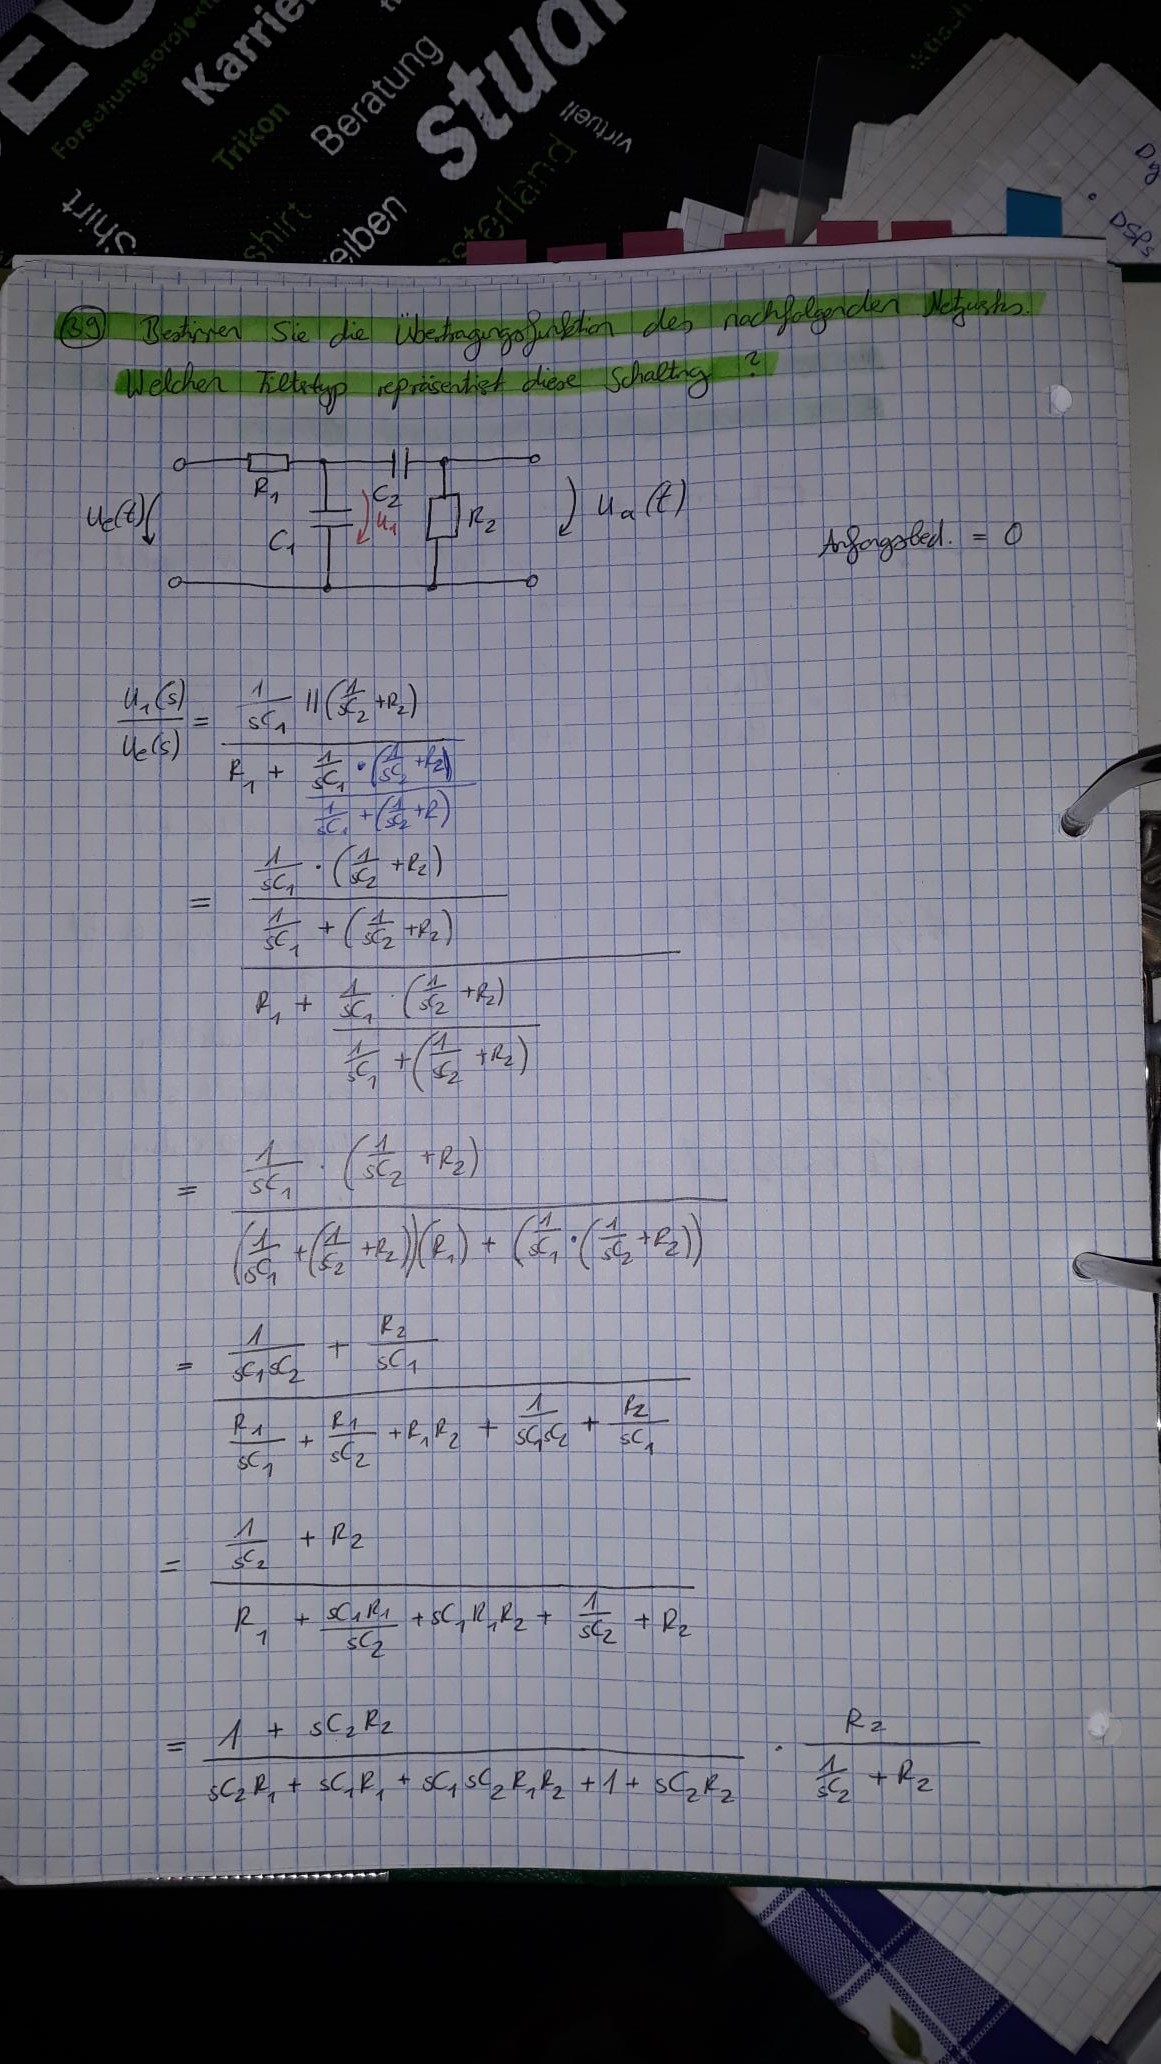 Forschungsprojekt
Karrie
Trikon
Beratung
Studi
virtuell
Shirt
shirt
eiben
oterland
DSPs
39 Bestimmen Sie die Übertragungsfunktion des nachfolgenden Netzwerks.
Welchen Filtertyp repräsentiert diese Schaltung?
R₁ C₂
uₑ(t) C₁ u₁ R₂ uₐ(t)
Anfangsbed. = 0
u₁(s)/uₑ(s) = (1/sC₁ || (1/sC₂ + R₂)) / (R₁ + (1/sC₁ · (1/sC₂ + R₂)) / (1/sC₁ + (1/sC₂ + R)))
= ((1/sC₁ · (1/sC₂ + R₂)) / (1/sC₁ + (1/sC₂ + R₂))) / (R₁ + (1/sC₁ · (1/sC₂ + R₂)) / (1/sC₁ + (1/sC₂ + R₂)))
= (1/sC₁ · (1/sC₂ + R₂)) / ((1/sC₁ + (1/sC₂ + R₂))(R₁) + (1/sC₁ · (1/sC₂ + R₂)))
= (1/sC₁sC₂ + R₂/sC₁) / (R₁/sC₁ + R₁/sC₂ + R₁R₂ + 1/sC₁sC₂ + R₂/sC₁)
= (1/sC₂ + R₂) / (R₁ + sC₁R₁/sC₂ + sC₁R₁R₂ + 1/sC₂ + R₂)
= (1 + sC₂R₂) / (sC₂R₁ + sC₁R₁ + sC₁sC₂R₁R₂ + 1 + sC₂R₂) · R₂ / (1/sC₂ + R₂)